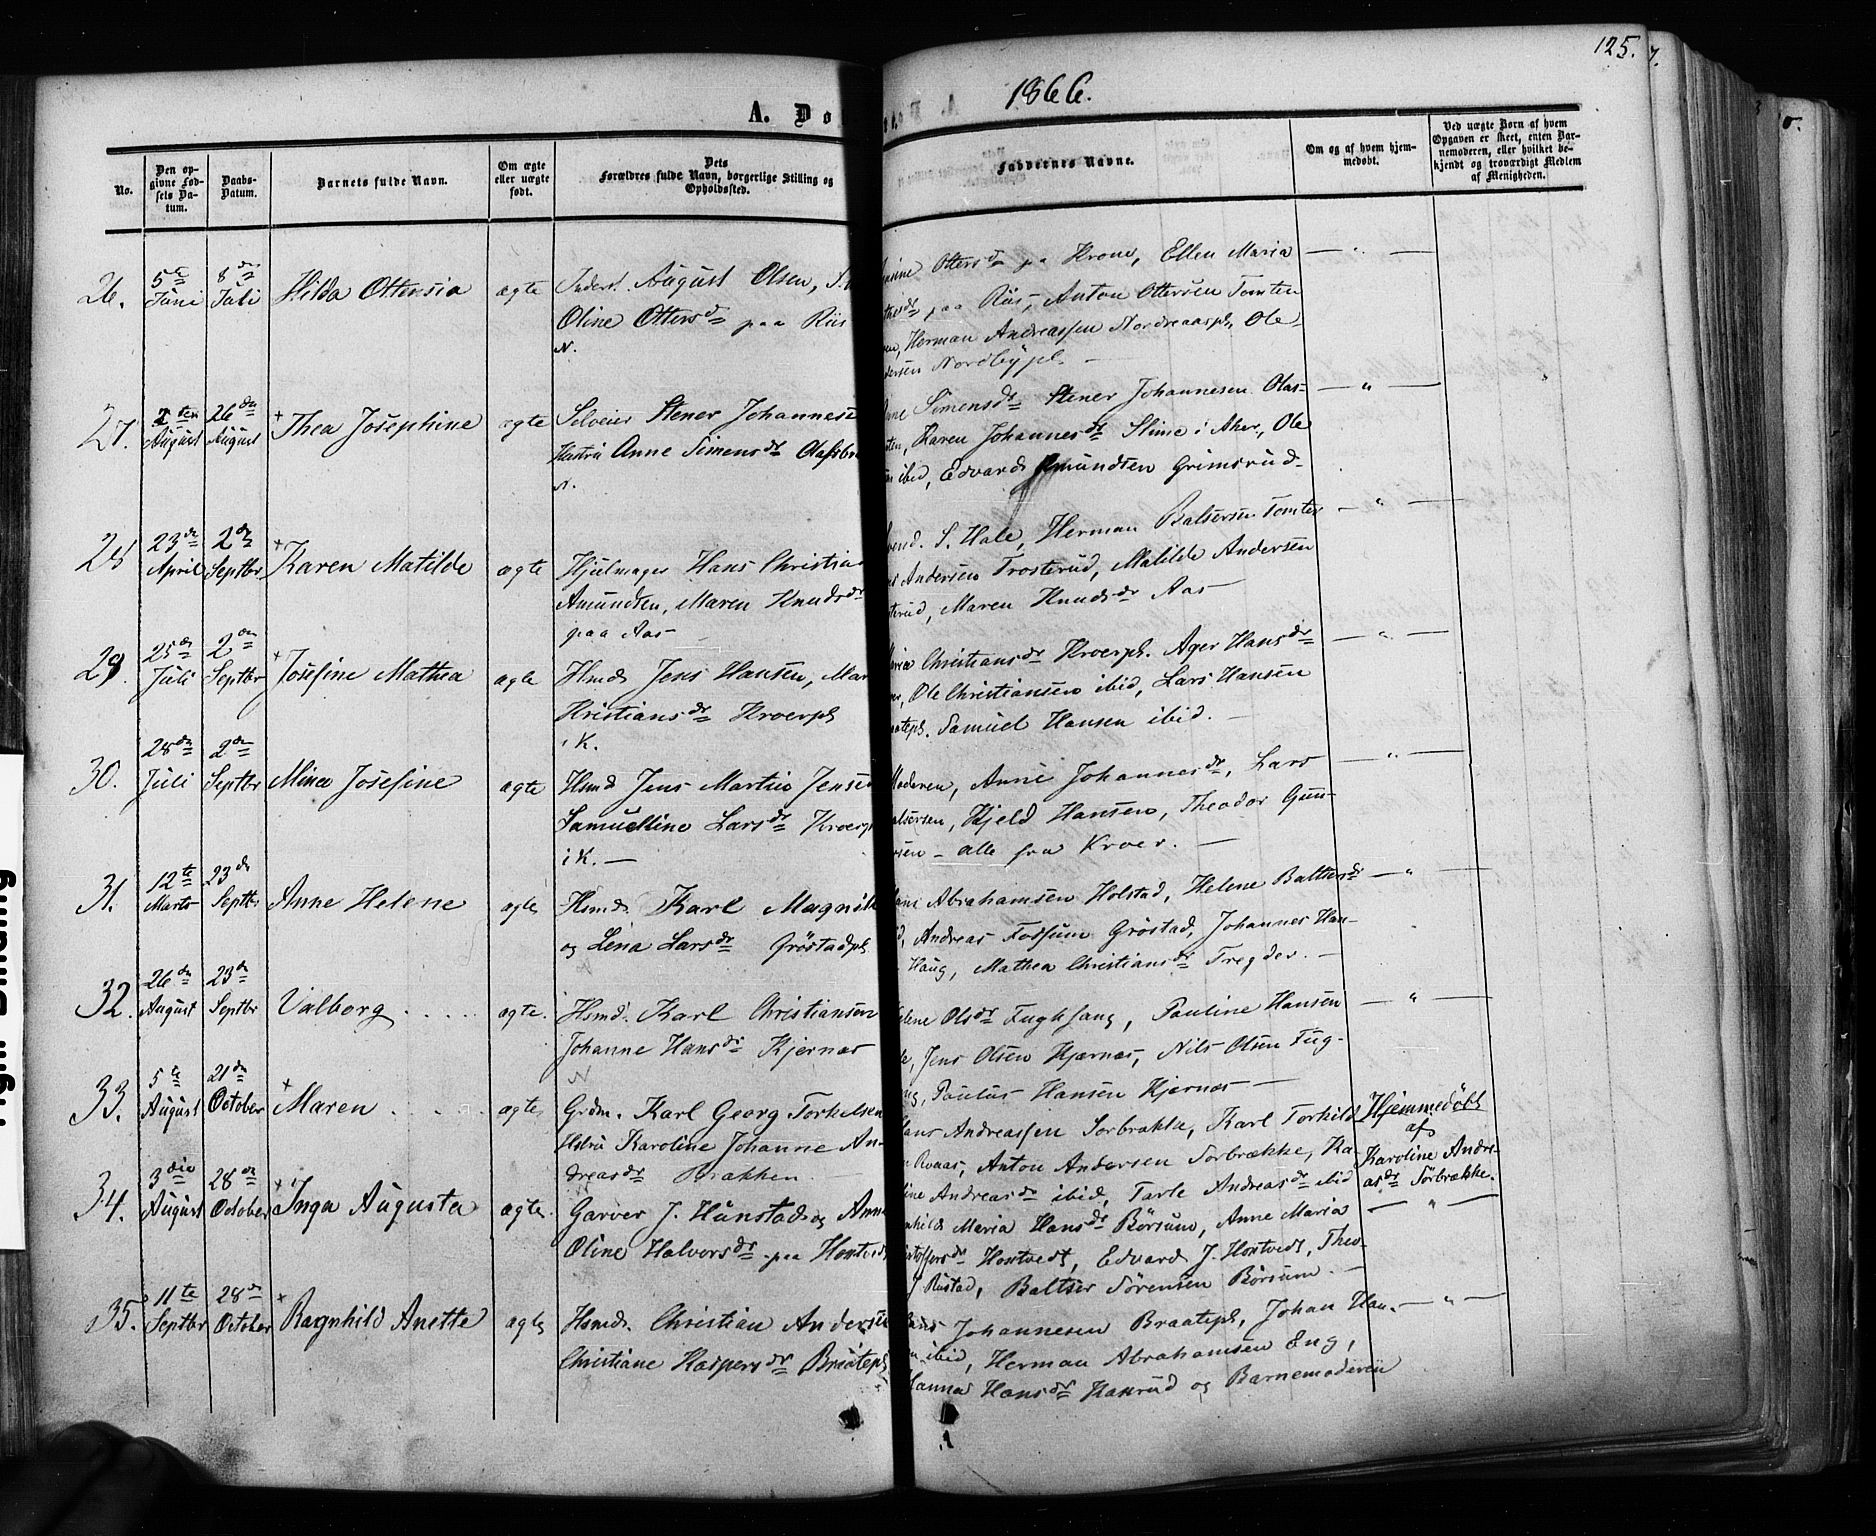 125.
1866.
A. Dø
No.
Den opgivne Fødsels Datum.
Daabs-Datum.
Barnets fulde Navn.
Om ægte eller uægte født.
Dets Forældres fulde Navn, borgerlige Stilling og Opholdssted.
Faddernes Navne.
Om og af hvem hjemmedøbt.
Ved uægte Børn af hvem Opgaven er skeet, enten Barnemoderen, eller hvilket bekjendt og troværdigt Medlem af Menigheden.
26. 5te Juni 8de Juli Hilda Ottersia ægte Inderst. August Olsen,
Oline Ottersdr paa Riis
N.
Ottersdr paa Krone, Ellen Maria
paa Riis, Anton Ottersen Tomten
Herman Andreassen Nordreaaspl, Ole
Nordbypl. —
— " —
27. 2den August 26de August + Thea Josephine ægte Selveier Stener Johannese
Hustru Anne Simensdr Olafsbr
N.
Simensdr Stener Johannesen Olas-
Karen Johannesdr Slime i Aker, Ole
ibid, Edvard Amundsen Grimsrud-
— " —
28 23de April 2de Septbr + Karen Matilde ægte Hjulmager Hans Christian
Amundsen, Maren Knudsdr
paa Aas —
S. Hale, Herman Baltsersen Tomter
Andersen Trosterud, Matilde Andersen
Maren Knudsdr Aas —
— " —
29. 25de Juli 2de Septbr + Josefine Mathea ægte Hsmd Jens Hansen, Mar
Kristiansdr Kroerpl
i K.
Christiansdr Kroerpl. Ager Hansdr
Ole Christiansen ibid, Lars Hansen
Samuel Hansen ibid. —
— " —
30. 28de Juli 2de Septbr Mina Josefine ægte Hsmd Jens Martin Jense
Samueline Larsdr Kroerp
i K. —
Moderen, Anne Johannesdr, Lars
Kjeld Hansen, Theodor Gun-
— alle fra Kroer. —
— " —
31. 12te Marts 23de Septbr Anne Helene ægte Hsmd. Karl Magnus
og Lena Larsdr Grøstadpl
Abrahamsen Holstad, Helene Baltsersdr
Andreas Fossum Grøstad, Johannes Han-
Haug, Mathea Christiansdr Tregder. —
— " —
32. 26de August 23de Septbr Valborg ægte. Hsmd. Karl Christiansen
Johanne Hansdr Kjernæs
N
Olsdr Fuglesang, Pauline Hansen
Jens Olsen Kjærnæs, Nils Olsen Fug-
Paulus Hansen Kjernæs —
— " —
33. 5te August 21de October + Maren ægte Grdm. Karl Georg Torkelsen
Hstru Karoline Johanne An-
dreasdr Brækken
Andreassen Sorbrække, Karl Torkild
Anton Andersen Sorbrække, Ka-
Andreasdr ibid, Tarle Andreasdr ibid
Hjemmedøbt af Karoline Andre-
asdr Sørbrække.
34. 3die August 28de October + Inga Augusta ægte. Garver J. Hunstad og Anne
Oline Halvorsdr paa Hontvedt
Maria Hansdr Børsum, Anne Maria
Hontvedt, Edvard J. Hontvedt, Theo-
J Rustad, Baltser Sørensen Børsum. —
— " —
35. 11te Septbr 28de October + Ragnhild Anette ægte Hsmd. Christian Anderse
Christiane Kaspersdr Braatepl
Johannesen Braatepl, Johan Han-
ibid, Herman Abrahamsen Eng,
Hansdr Kaxrud og Barnemoderen
— " —